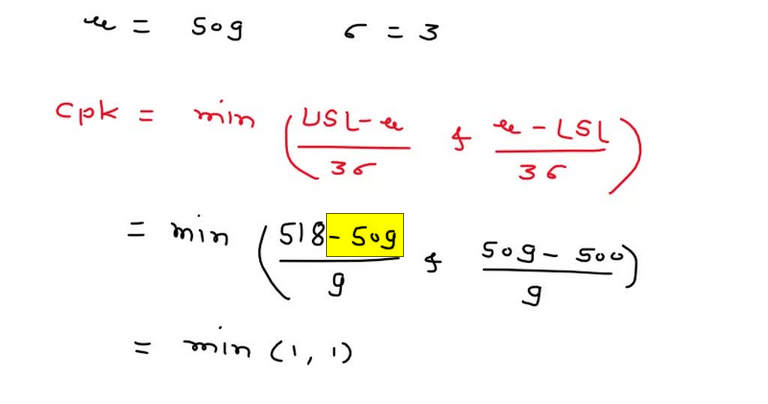 μ = 509 σ = 3
Cpk = min (USL-μ / 3σ & μ-LSL / 3σ)
= min (518-509 / 9 & 509-500 / 9)
= min (1, 1)